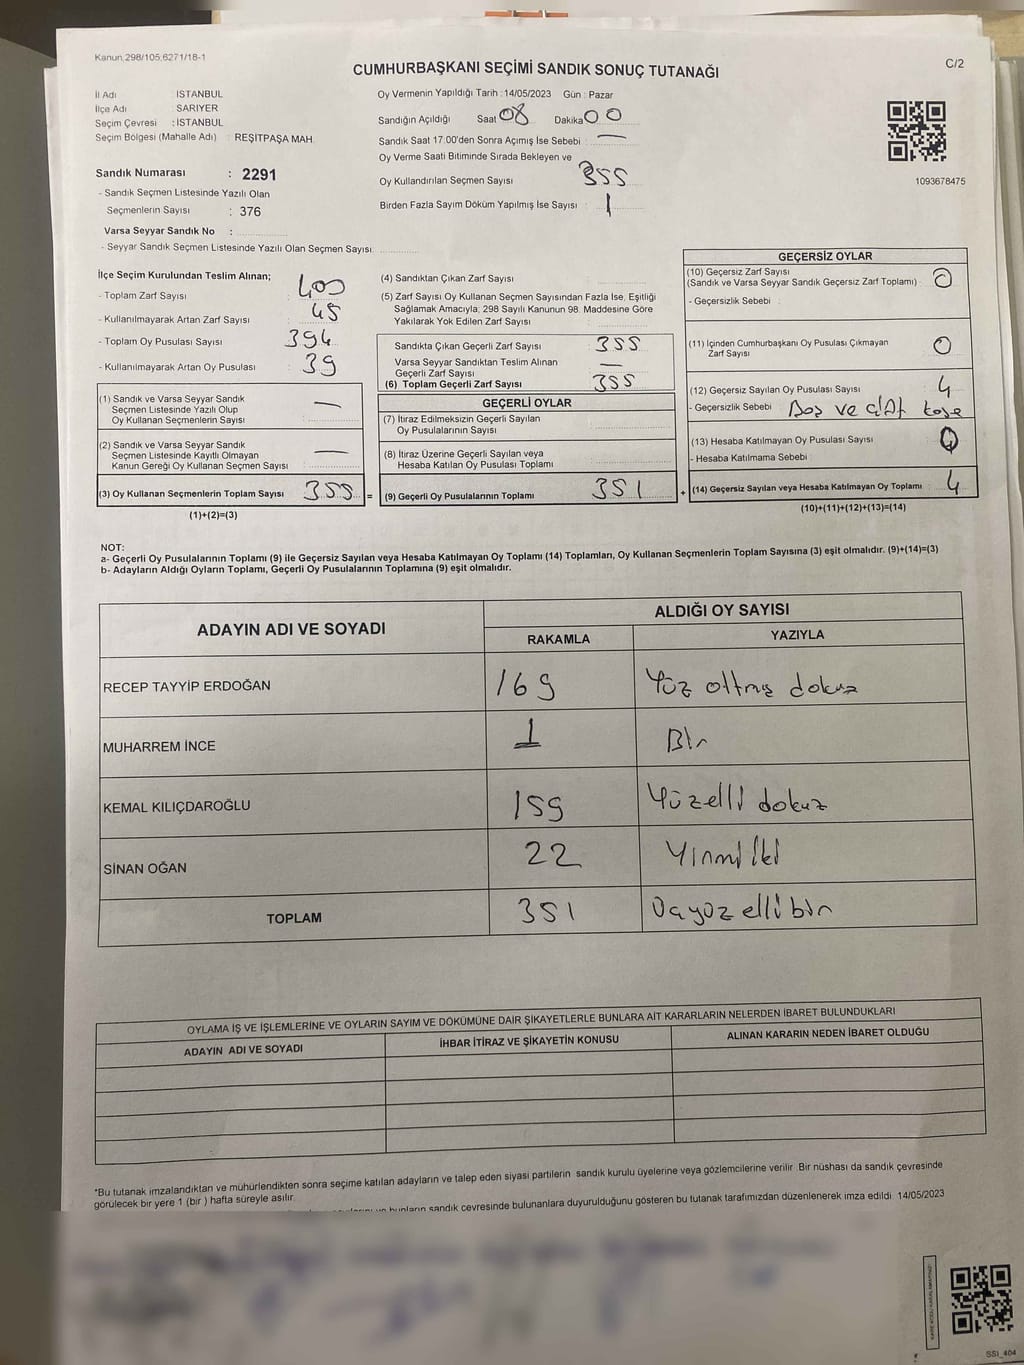 Kanun 298/105,6271/18-1
C/2
CUMHURBAŞKANI SEÇİMİ SANDIK SONUÇ TUTANAĞI
İl Adı İSTANBUL
İlçe Adı SARIYER
Seçim Çevresi : İSTANBUL
Seçim Bölgesi (Mahalle Adı) REŞİTPAŞA MAH.
Sandık Numarası : 2291
- Sandık Seçmen Listesinde Yazılı Olan
Seçmenlerin Sayısı : 376
Varsa Seyyar Sandık No :
- Seyyar Sandık Seçmen Listesinde Yazılı Olan Seçmen Sayısı:
Oy Vermenin Yapıldığı Tarih : 14/05/2023 Gün : Pazar
Sandığın Açıldığı Saat 08 Dakika 00
Sandık Saat 17:00'den Sonra Açımış İse Sebebi : —
Oy Verme Saati Bitiminde Sırada Bekleyen ve
Oy Kullandırılan Seçmen Sayısı 355
Birden Fazla Sayım Döküm Yapılmış İse Sayısı : 1
1093678475
İlçe Seçim Kurulundan Teslim Alınan;
- Toplam Zarf Sayısı : 400
- Kullanılmayarak Artan Zarf Sayısı : 45
- Toplam Oy Pusulası Sayısı : 394
- Kullanılmayarak Artan Oy Pusulası : 39
(1) Sandık ve Varsa Seyyar Sandık
Seçmen Listesinde Yazılı Olup
Oy Kullanan Seçmenlerin Sayısı : —
(2) Sandık ve Varsa Seyyar Sandık
Seçmen Listesinde Kayıtlı Olmayan
Kanun Gereği Oy Kullanan Seçmen Sayısı : —
(3) Oy Kullanan Seçmenlerin Toplam Sayısı 355 =
(1)+(2)=(3)
(4) Sandıktan Çıkan Zarf Sayısı
(5) Zarf Sayısı Oy Kullanan Seçmen Sayısından Fazla İse, Eşitliği
Sağlamak Amacıyla, 298 Sayılı Kanunun 98. Maddesine Göre
Yakılarak Yok Edilen Zarf Sayısı :
Sandıkta Çıkan Geçerli Zarf Sayısı 355
Varsa Seyyar Sandıktan Teslim Alınan
Geçerli Zarf Sayısı —
(6) Toplam Geçerli Zarf Sayısı 355
GEÇERLİ OYLAR
(7) İtiraz Edilmeksizin Geçerli Sayılan
Oy Pusulalarının Sayısı
(8) İtiraz Üzerine Geçerli Sayılan veya
Hesaba Katılan Oy Pusulası Toplamı
(9) Geçerli Oy Pusulalarının Toplamı 351 +
GEÇERSİZ OYLAR
(10) Geçersiz Zarf Sayısı
(Sandık ve Varsa Seyyar Sandık Geçersiz Zarf Toplamı) : 0
- Geçersizlik Sebebi :
(11) İçinden Cumhurbaşkanı Oy Pusulası Çıkmayan
Zarf Sayısı 0
(12) Geçersiz Sayılan Oy Pusulası Sayısı 4
- Geçersizlik Sebebi : Boş ve çift kaşe
(13) Hesaba Katılmayan Oy Pusulası Sayısı
- Hesaba Katılmama Sebebi :
(14) Geçersiz Sayılan veya Hesaba Katılmayan Oy Toplamı : 4
(10)+(11)+(12)+(13)=(14)
NOT:
a- Geçerli Oy Pusulalarının Toplamı (9) ile Geçersiz Sayılan veya Hesaba Katılmayan Oy Toplamı (14) Toplamları, Oy Kullanan Seçmenlerin Toplam Sayısına (3) eşit olmalıdır. (9)+(14)=(3)
b- Adayların Aldığı Oyların Toplamı, Geçerli Oy Pusulalarının Toplamına (9) eşit olmalıdır.
ADAYIN ADI VE SOYADI
ALDIĞI OY SAYISI
RAKAMLA YAZIYLA
RECEP TAYYİP ERDOĞAN 169 Yüz altmış dokuz
MUHARREM İNCE 1 Bir
KEMAL KILIÇDAROĞLU 159 Yüzelli dokuz
SİNAN OĞAN 22 Yirmi iki
TOPLAM 351 Üçyüz elli bir
OYLAMA İŞ VE İŞLEMLERİNE VE OYLARIN SAYIM VE DÖKÜMÜNE DAİR ŞİKAYETLERLE BUNLARA AİT KARARLARIN NELERDEN İBARET BULUNDUKLARI
ADAYIN ADI VE SOYADI İHBAR İTİRAZ VE ŞİKAYETİN KONUSU ALINAN KARARIN NEDEN İBARET OLDUĞU
*Bu tutanak imzalandıktan ve mühürlendikten sonra seçime katılan adayların ve talep eden siyasi partilerin sandık kurulu üyelerine veya gözlemcilerine verilir. Bir nüshası da sandık çevresinde
görülecek bir yere 1 (bir ) hafta süreyle asılır.
bunların sandık çevresinde bulunanlara duyurulduğunu gösteren bu tutanak tarafımızdan düzenlenerek imza edildi. 14/05/2023
SSI_404